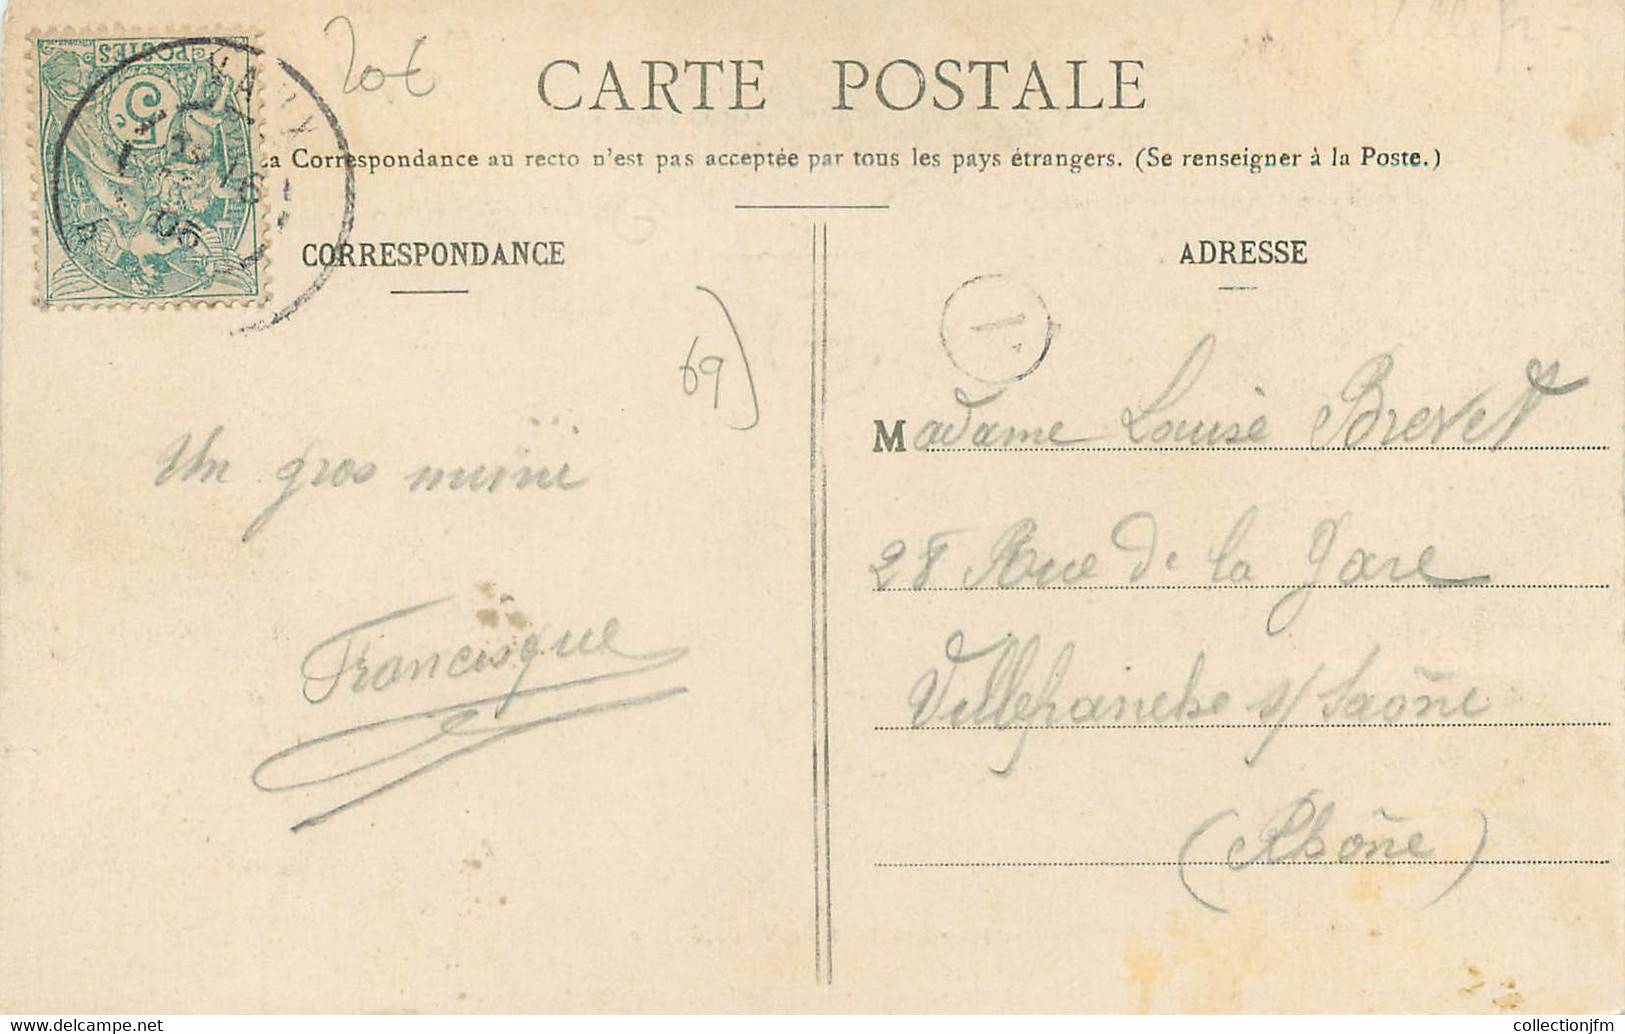 20€
CARTE POSTALE
La Correspondance au recto n'est pas acceptée par tous les pays étrangers. (Se renseigner à la Poste.)
POSTES
5c
VAUX
16
06
CORRESPONDANCE
69)
Un gros mimi
Francisque
ADRESSE
1
Madame Louise Brevet
28 Rue de la Gare
Villefranche s/ Saône
(Rhône)
collectionjfm